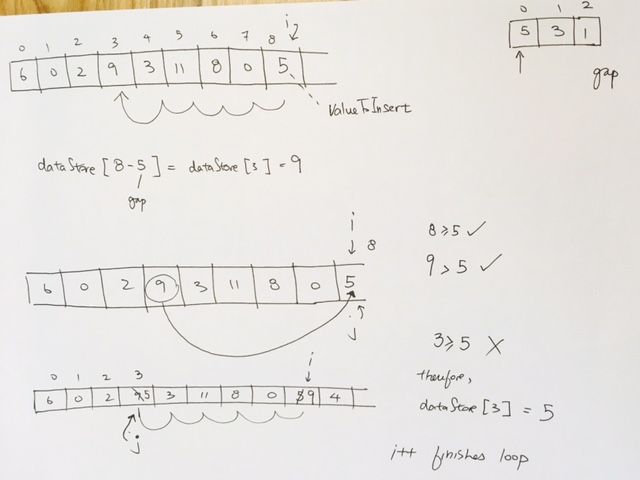 i
0 1 2 3 4 5 6 7 8
6 0 2 9 3 11 8 0 5
ValueToInsert
0 1 2
5 3 1
gap
dataStore [8-5] = dataStore [3] = 9
gap
i
8
6 0 2 9 3 11 8 0 5
j
8≥5 ✓
9>5 ✓
3≥5 X
therefore,
dataStore [3] = 5
i++ finishes loop
i
0 1 2 3
6 0 2 9 5 3 11 8 0 5 9 4
j